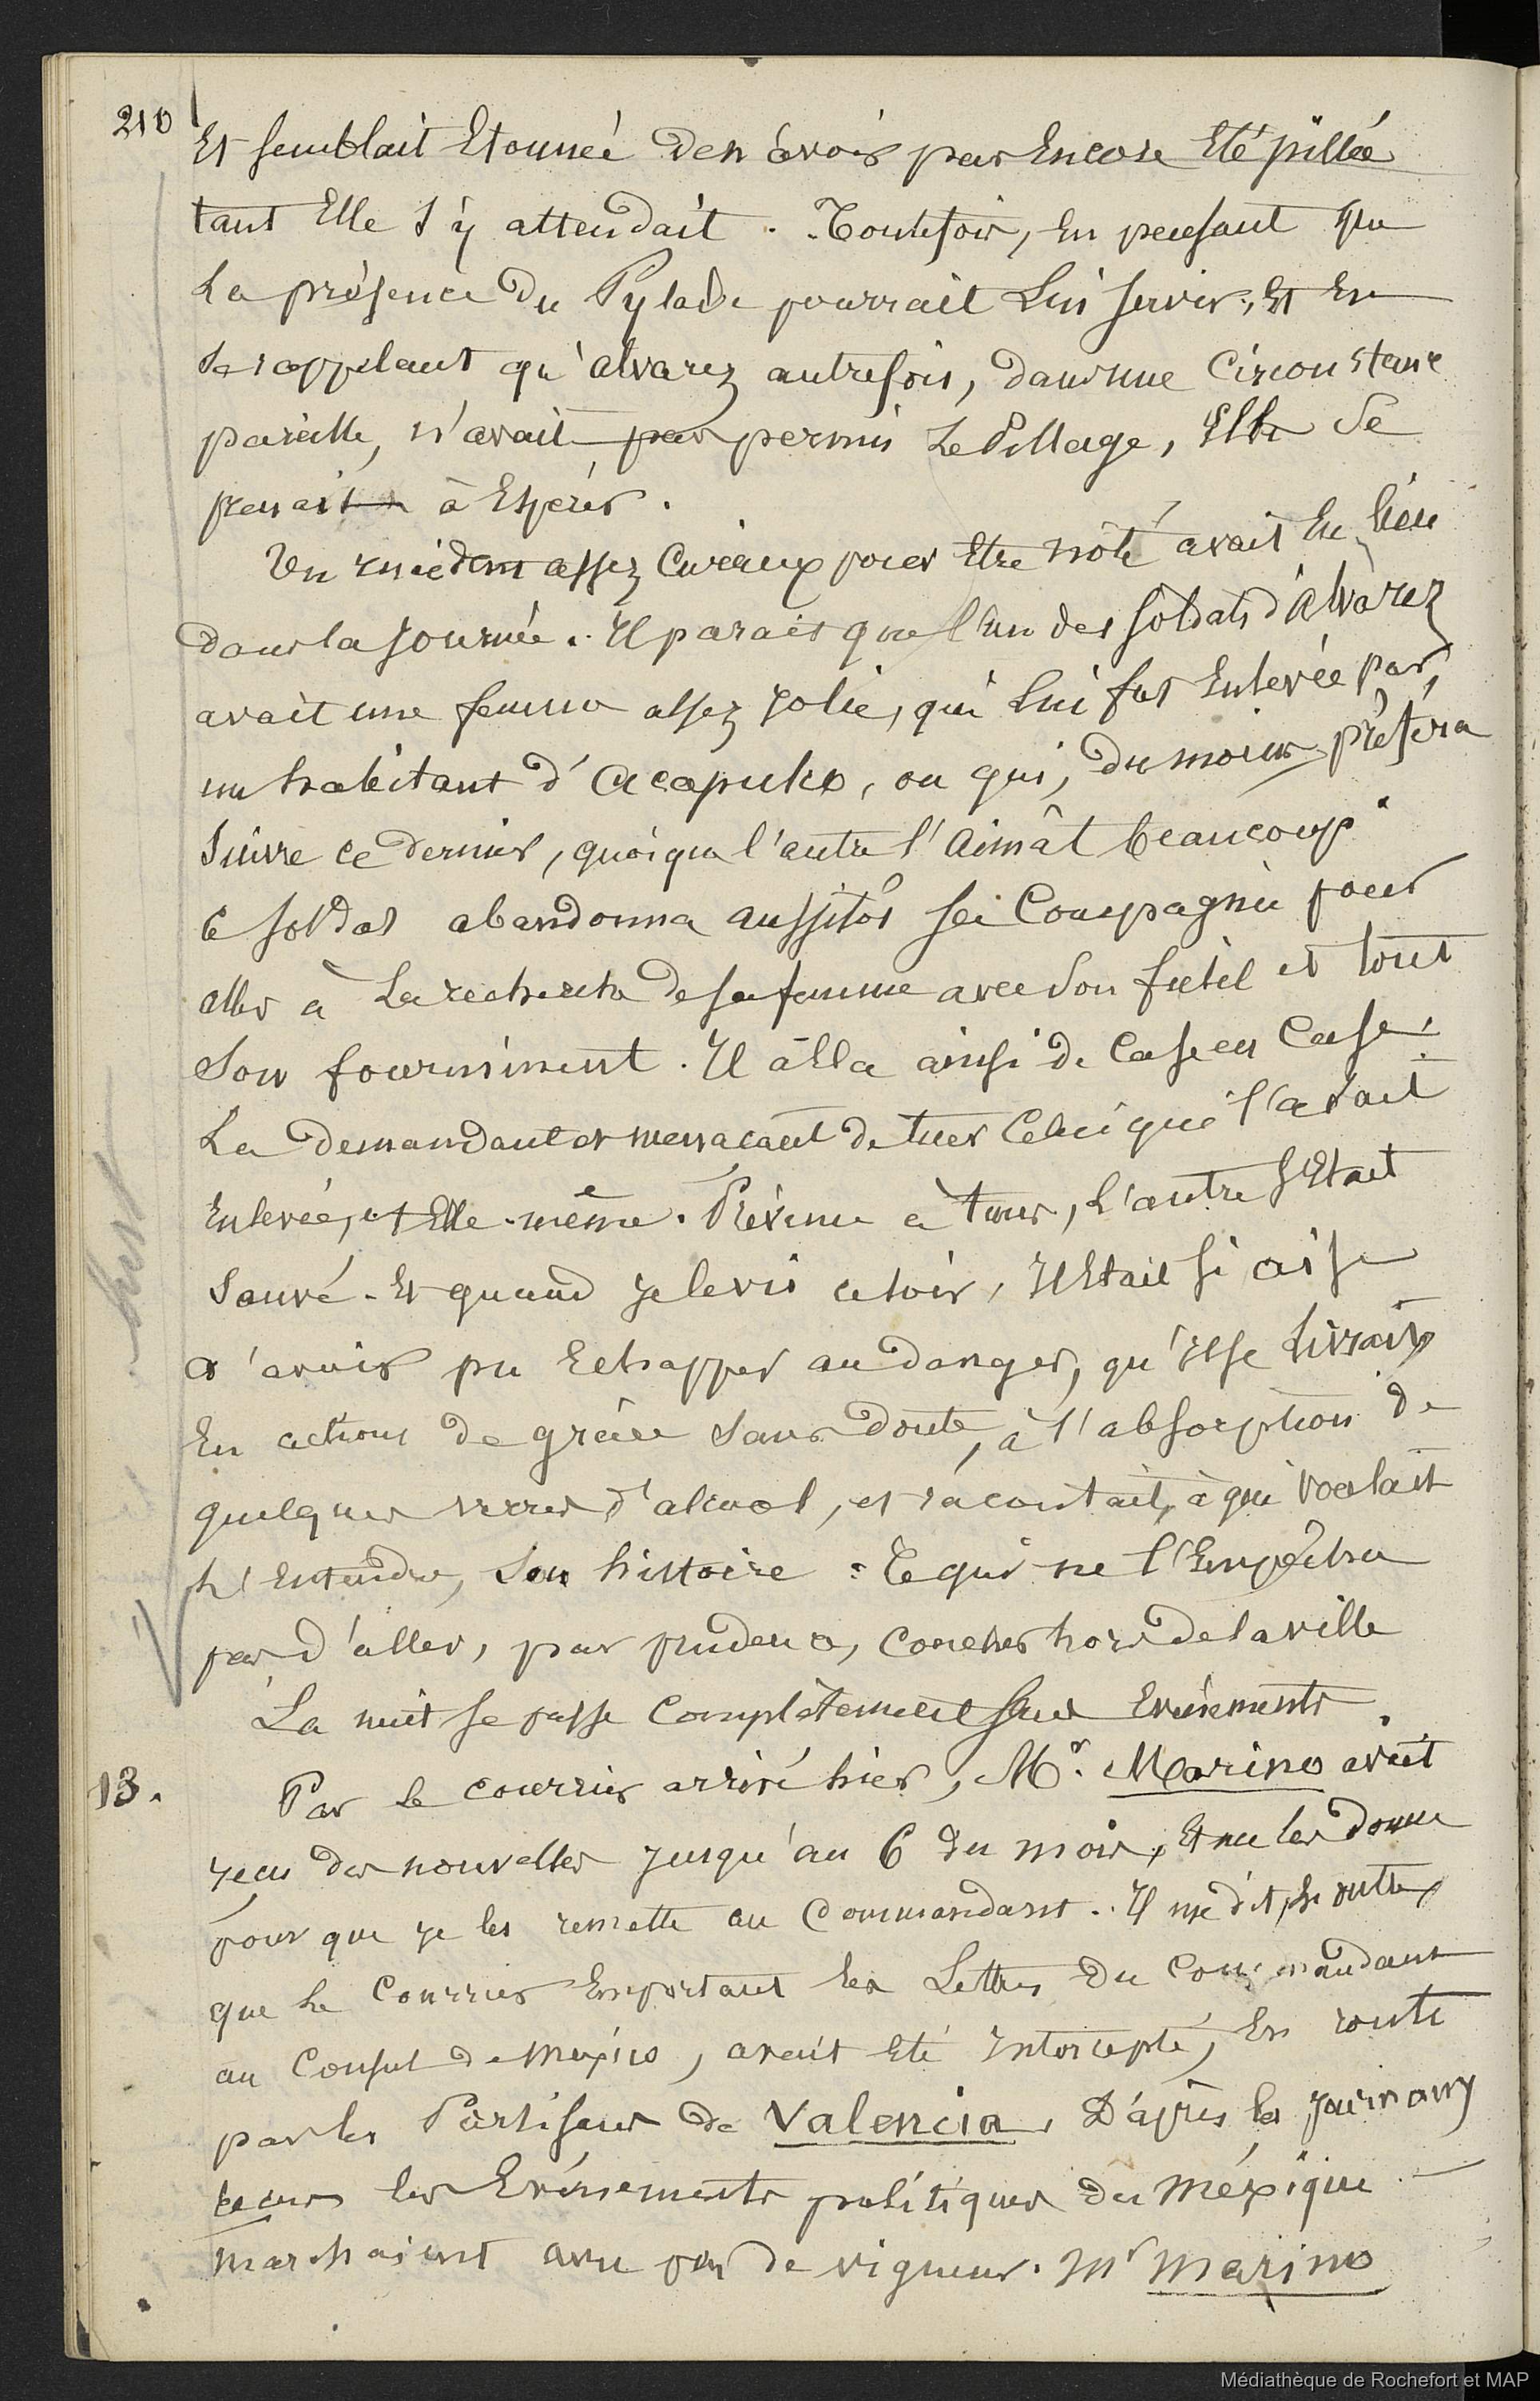 210
Et semblait Etonnée den avoir pas Encore Eté pillée
tant Elle s'y attendait. Toutefois, En pensant que
La présence du Pylade pourrait Lui servir, Et En
se rappelant qu'alvarez autrefois, dans une Circonstance
pareille, n'avait pas permis Le Pillage, Elle Se
prenait à Espérer.
Un incident assez Curieux pour Etre noté avait Eu lieu
dans la Journée. Il parait que l'un des soldats d'alvarez
avait une femme assez Jolie, qui Lui fut Enlevée par
un habitant d'Acapulco, ou qui, du moins, préféra
Suivre ce dernier, quoique l'autre l'Aimât beaucoup.
Ce soldat abandonna aussitôt sa Compagnie pour
aller à La recherche de sa femme avec son fusil et tout
Son fourniment. Il alla ainsi de Case en Case,
La demandant et menaçant de tuer Celui qui l'avait
Enlevée, et Elle-même. Prévenu à temps, L'autre s'Etait
Sauvé. Et quand Je le vis ce soir, Il Etait si aise
d'avoir pu Echapper au danger, qu'Il se Livrait,
En actions de grâce sans doute, à l'absorption de
quelques verres d'alcool, et racontait, à qui voulait
L'Entendre, Son histoire. Ce qui ne l'Empêcha
pas d'aller, par prudence, Coucher hors de la ville
La nuit se passe Complètement sans Evénements.
13.
Par Le courrier arrivé hier, Mr. Marino avait
reçu des nouvelles Jusqu'au 6 du mois, Et me les donne
pour que Je les remette au Commandant. Il me dit, En outre,
que Le Courrier Emportant les Lettres du Commandant
au Consul de Mexico, avait Eté Intercepté, En route
par les Partisans de Valencia. D'après les Journaux
reçus les Evénements politiques du Méxique
marchaient avec peu de vigueur. Mr Marino
Médiathèque de Rochefort et MAP